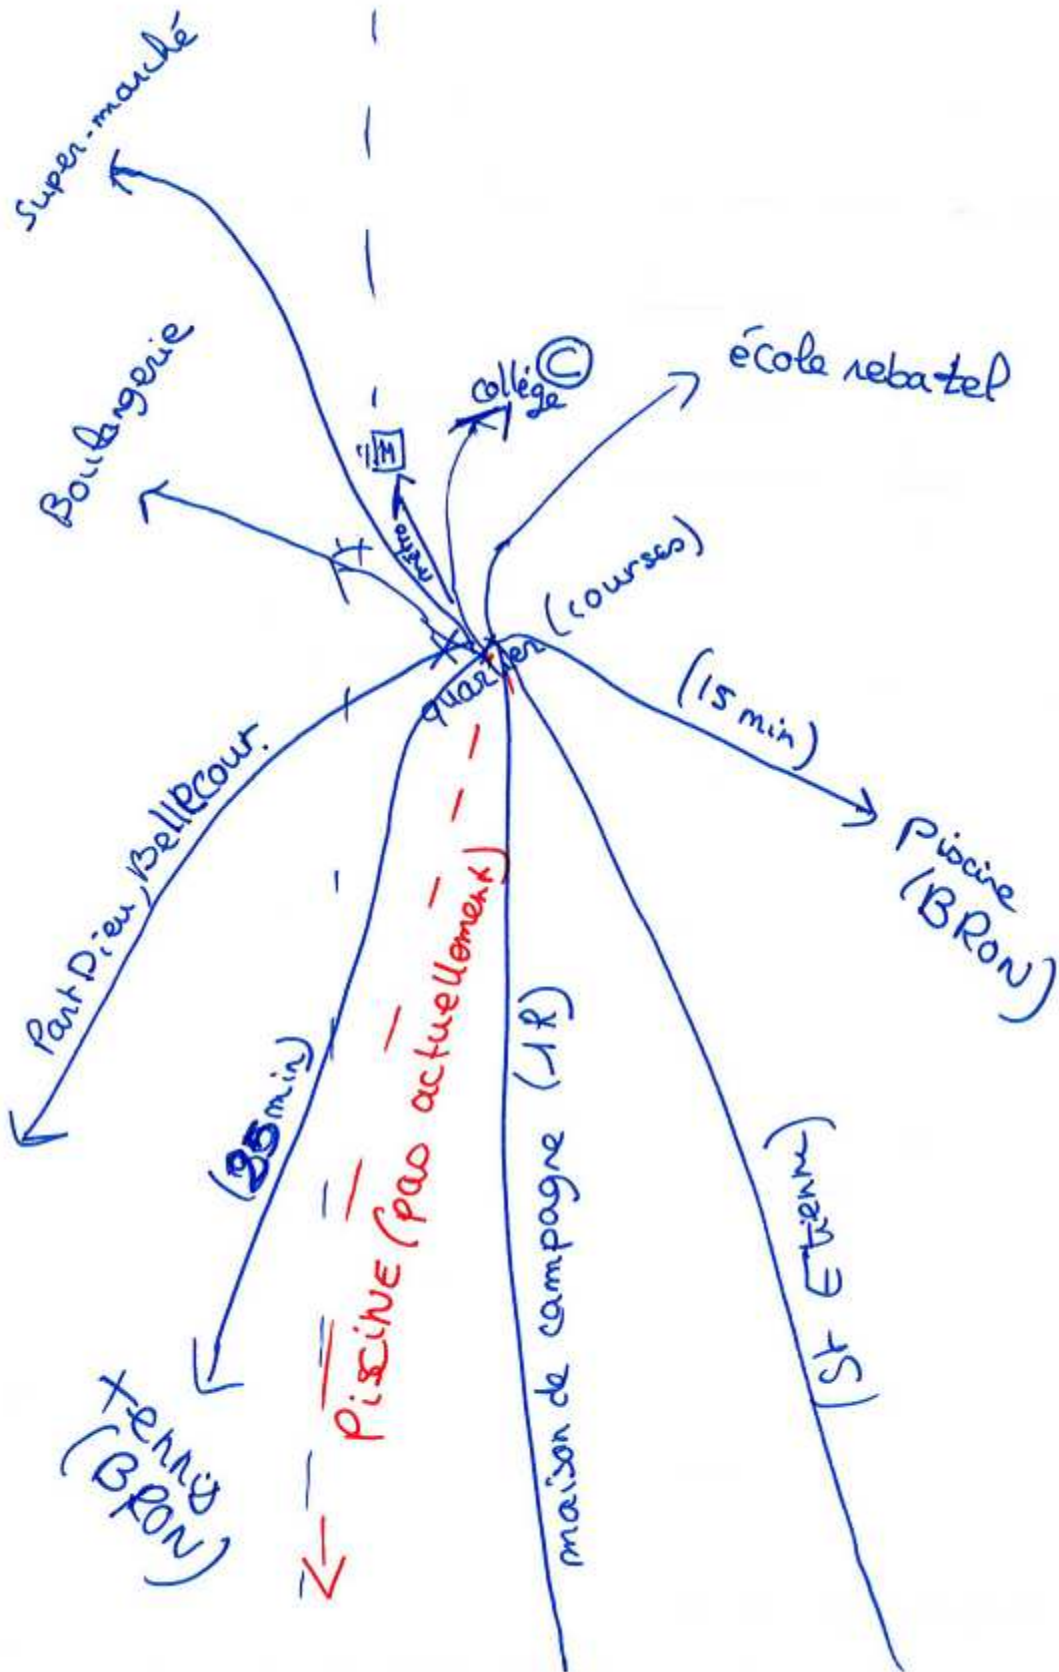 Super-marché
Boulangerie
M
métro
collége
C
école rebatel
quartier (courses)
(15 min)
Piscine
(BRON)
Part Dieu, Bellecour.
(35 min)
tennis
(BRON)
PisciNE (pas actuellement)
maison de campagne (1h)
(St Etienne)